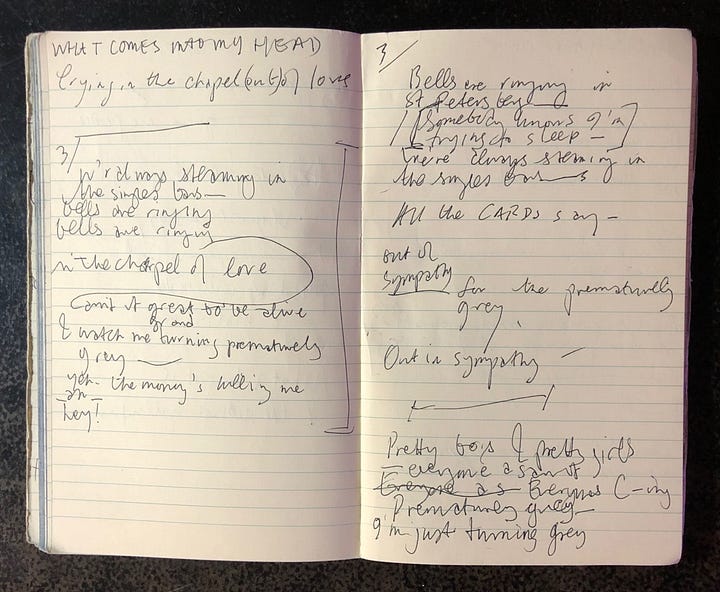 WHAT COMES INTO MY HEAD
Crying in the chapel (out) of love
3/
W're always steaming in
the singles bars—
bells are ringing
bells are ringing
in the chapel of love
ain't it great to be alive
grand
I watch me turning prematurely
grey —
yeh - the money's calling me
hey!
3/
Bells are ringing in
St Petersberg
[Somebody knows I'm
trying to sleep —]
We're always steaming in
the singles bars
All the CARDS say —
out of
sympathy
for the prematurely
grey
Out in sympathy —
Pretty boys & pretty girls
everyone
Everyone as Everyones C-ing
Prematurely grey —
I'm just turning grey